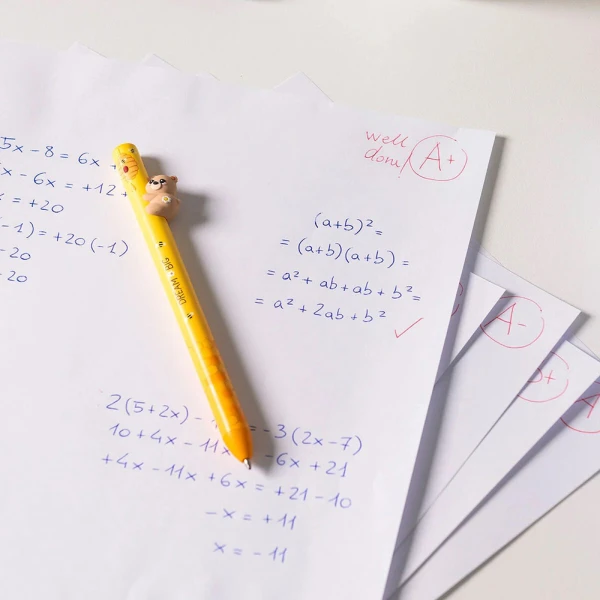 well
done! A+
5x - 8 = 6x +
x - 6x = +12 +
= +20
-1) = +20 (-1)
-20
-20
(a+b)² =
= (a+b)(a+b) =
= a² + ab + ab + b² =
= a² + 2ab + b²
DREAM · BIG
2(5+2x) - = -3(2x-7)
10 + 4x - 11x -6x + 21
+4x - 11x + 6x = +21 - 10
-x = +11
x = -11
A-
+
A